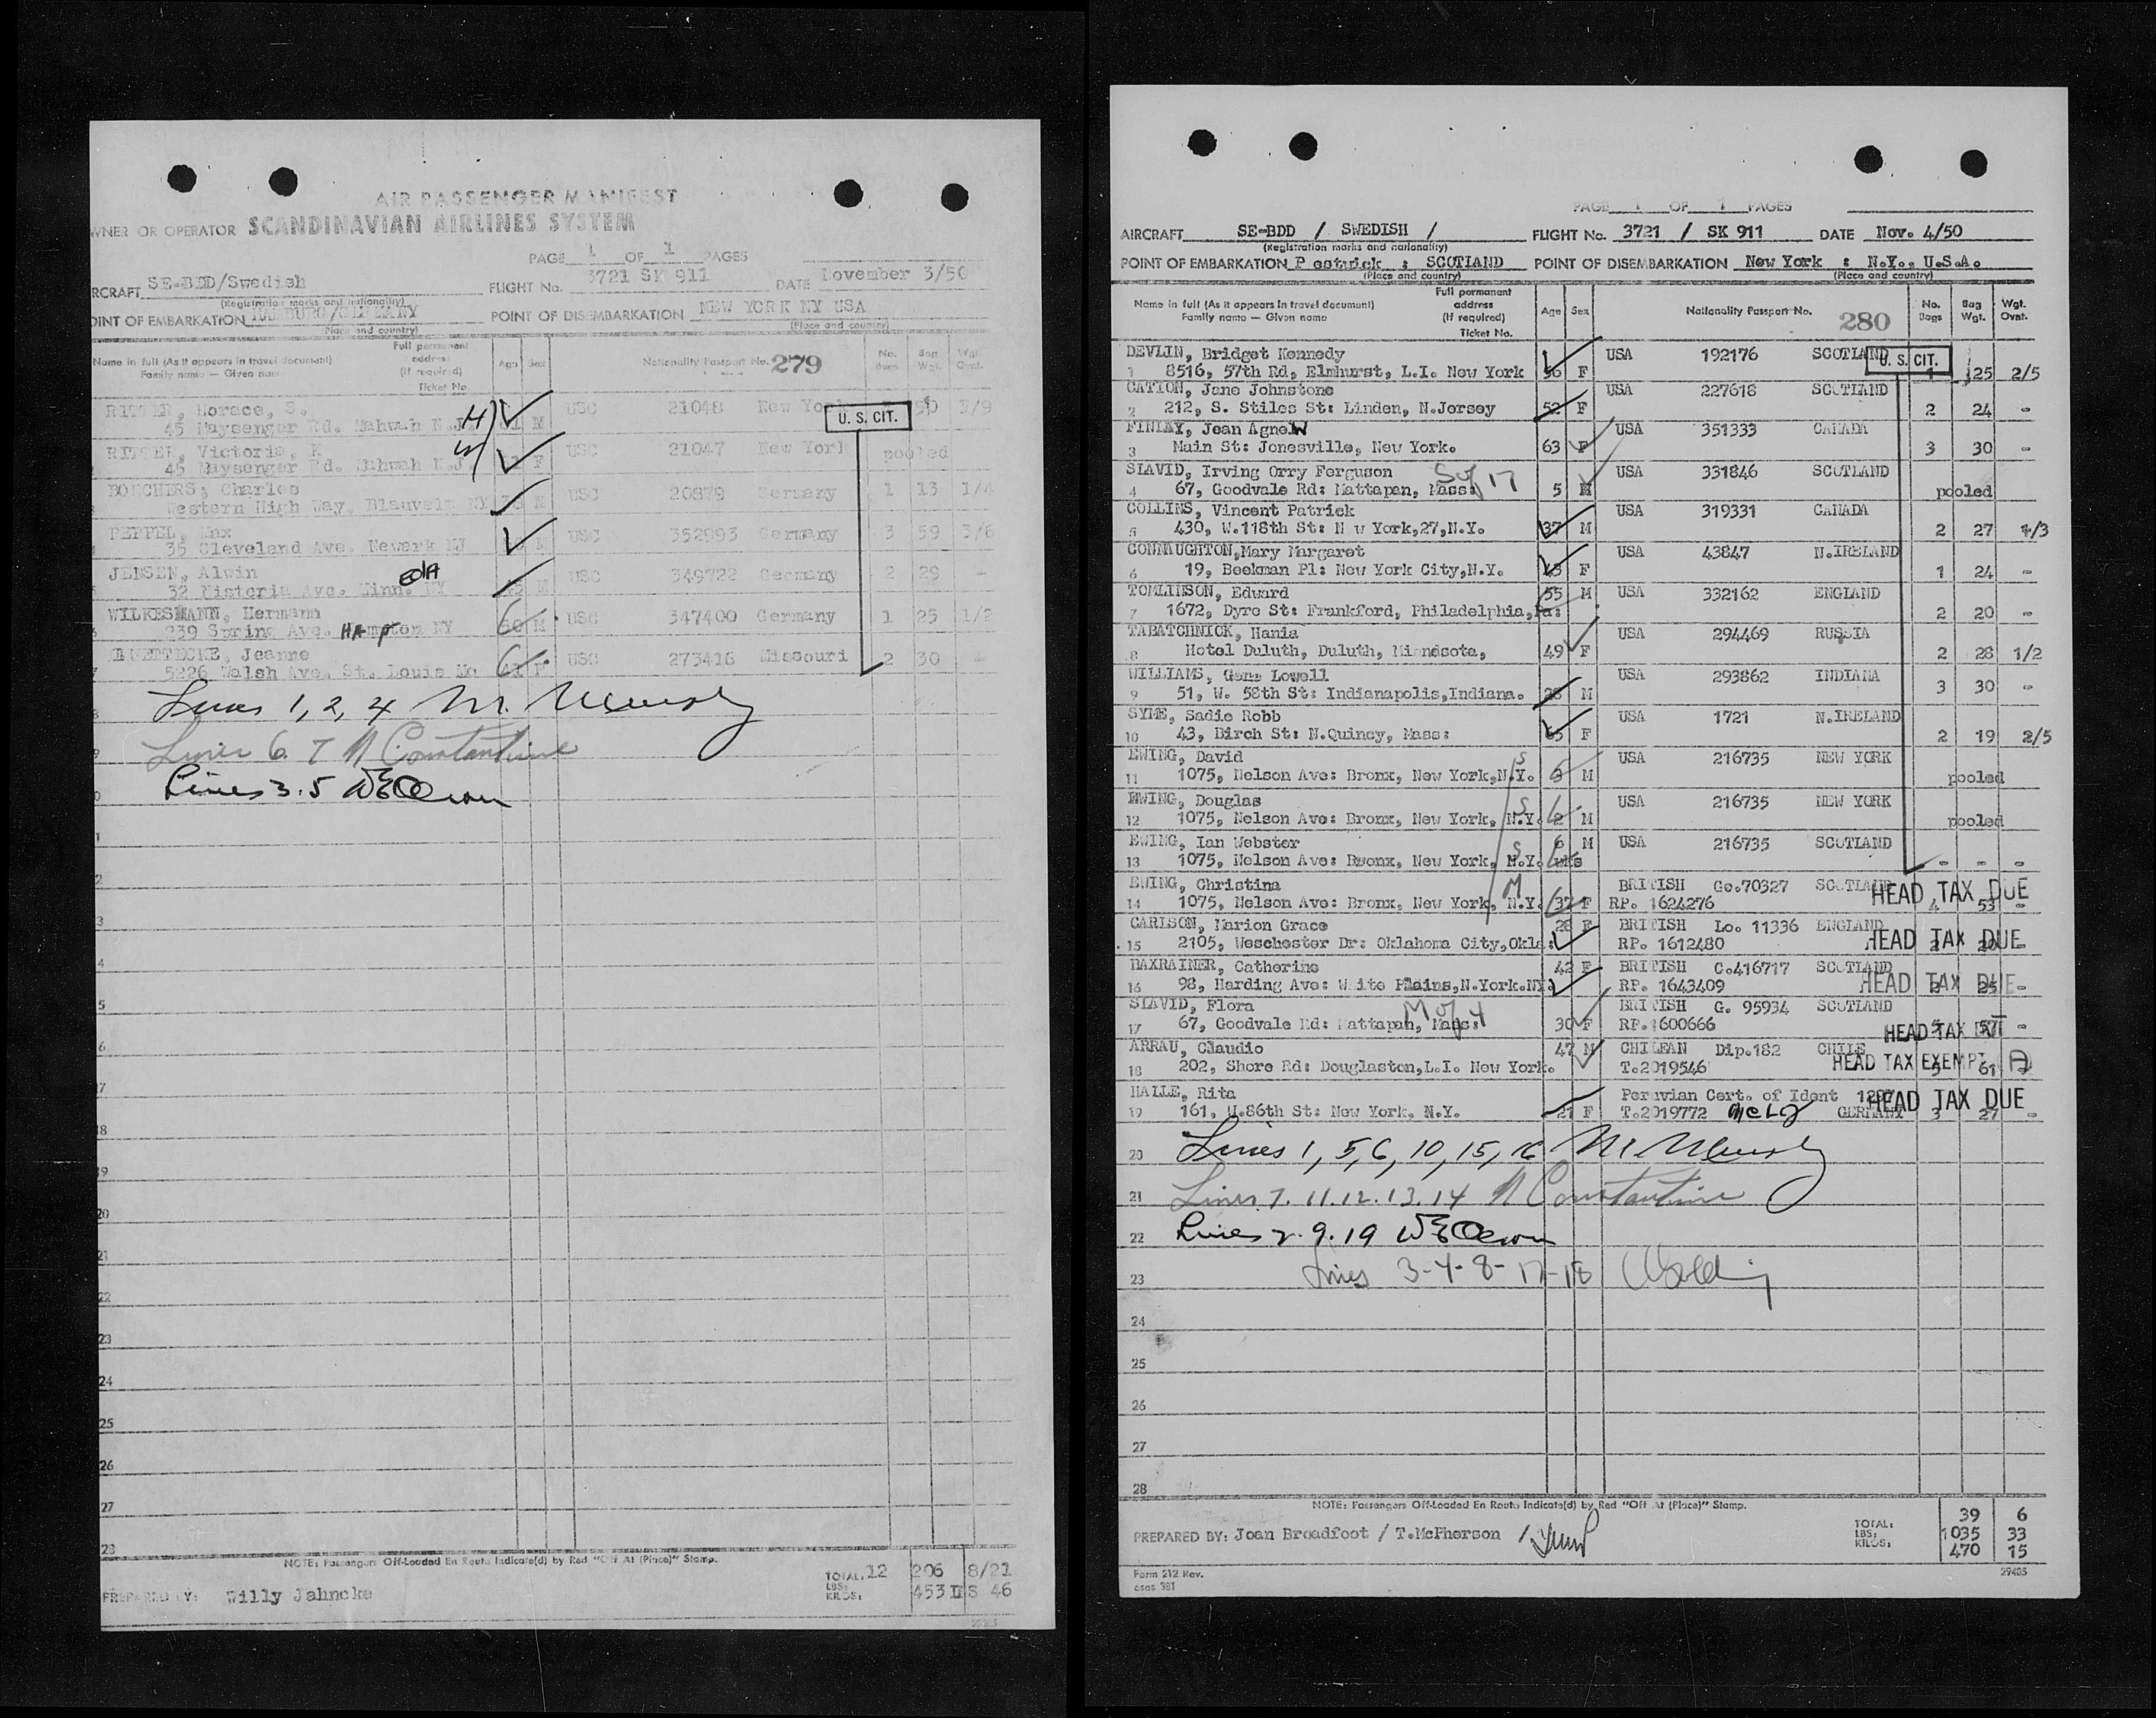 AIR PASSENGER MANIFEST
WNER OR OPERATOR SCANDINAVIAN AIRLINES SYSTEM
PAGE 1 OF 1 PAGES
RCRAFT SE-BDD/Swedish FLIGHT No. 3721 SK 911 DATE November 3/50
(Registration marks and nationality)
OINT OF EMBARKATION HAMBURG/GERMANY POINT OF DISEMBARKATION NEW YORK NY USA
(Place and country) (Place and country)
Name in full (As it appears in travel document) Full permanent address (If required) Age Sex Nationality Passport No. 279 No. Bags Bag Wgt. Wgt. Ovwt.
Family name — Given name Ticket No.
RITTER, Horace, S. H M USC 21048 New York 50 3/9
45 Maysenger Rd. Mahwah N.J.
U. S. CIT.
RITTER, Victoria, K W F USC 21047 New York pooled
45 Maysenger Rd. Mahwah N.J.
BORCHERS, Charles M USC 20879 Germany 1 13 1/4
Western High Way, Blauvelt NY
PEPPEL, Max M USC 352993 Germany 3 59 3/6
35 Cleveland Ave. Newark NJ
JENSEN, Alwin M USC 349722 Germany 2 29 -
32 Ave. Minn. NY
WILKESMANN, Hermann 60 M USC 347400 Germany 1 25 1/2
239 Spring Ave. HAmpton NY
Jeanne 41 F USC 273416 Missouri 2 30 -
5226 Walsh Ave. St. Louis Mo.
Lines 1, 2, 4 M.
Lines 6. 7 N Constantine
Lines 3. 5
NOTE: Passengers Off-Loaded En Route Indicate(d) by Red "Off At (Place)" Stamp.
TOTAL: 12 206 8/21
LBS: 453 LBS 46
KILOS:
PREPARED BY: Willy Jahncke
PAGE 1 OF 1 PAGES
AIRCRAFT SE-BDD / SWEDISH / FLIGHT No. 3721 / SK 911 DATE Nov. 4/50
(Registration marks and nationality)
POINT OF EMBARKATION P estwick : SCOTLAND POINT OF DISEMBARKATION New York : N.Y., U.S.A.
(Place and country) (Place and country)
Name in full (As it appears in travel document) Full permanent address (If required) Age Sex Nationality Passport No. 280 No. Bags Bag Wgt. Wgt. Ovwt.
Family name — Given name Ticket No.
DEVLIN, Bridget Kennedy USA 192176 SCOTLAND U. S. CIT.
1 8516, 57th Rd, Elmhurst, L.I. New York 56 F 1 25 2/5
CATION, Jane Johnstone USA 227618 SCOTLAND
2 212, S. Stiles St: Linden, N.Jersey 52 F 2 24 -
FINLAY, Jean AgneW USA 351333 CANADA
3 Main St: Jonesville, New York. 63 F 3 30 -
SLAVID, Irving Orry Ferguson S of 17 USA 331846 SCOTLAND
4 67, Goodvale Rd: Mattapan, Mass: 5 M pooled
COLLINS, Vincent Patrick USA 319331 CANADA
5 430, W.118th St: N w York,27,N.Y. 37 M 2 27 1/3
CONNAUGHTON,Mary Margaret USA 43847 N.IRELAND
6 19, Beekman Pl: New York City,N.Y. 45 F 1 24 -
TOMLINSON, Edward 55 M USA 332162 ENGLAND
7 1672, Dyre St: Frankford, Philadelphia,Pa: 2 20 -
TABATCHNICK, Hania USA 294469 RUSSIA
8 Hotel Duluth, Duluth, Minnesota, 49 F 2 28 1/2
WILLIAMS, Gene Lowell USA 293862 INDIANA
9 51, W. 58th St: Indianapolis,Indiana. 28 M 3 30 -
SYME, Sadie Robb USA 1721 N.IRELAND
10 43, Birch St: N.Quincy, Mass: 65 F 2 19 2/5
EWING, David S USA 216735 NEW YORK
11 1075, Nelson Ave: Bronx, New York,N.Y. 3 M pooled
EWING, Douglas S USA 216735 NEW YORK
12 1075, Nelson Ave: Bronx, New York, N.Y. 2 M pooled
EWING, Ian Webster S 6 M USA 216735 SCOTLAND
13 1075, Nelson Ave: Bronx, New York, N.Y. wks - - -
EWING, Christina M BRITISH Go.70327 SCOTLAND HEAD TAX DUE
14 1075, Nelson Ave: Bronx, New York, N.Y. 37 F RP. 1624276 4 53 -
CARLSON, Marion Grace 28 F BRITISH Lo. 11336 ENGLAND
15 2105, Weschester Dr: Oklahoma City,Okla: RP. 1612480 HEAD TAX DUE
BAXRAINER, Catherine 42 F BRITISH C.416717 SCOTLAND
16 98, Harding Ave: W ite Plains,N.York.NY. RP. 1643409 HEAD TAX DUE
SLAVID, Flora M of 4 BRITISH G. 95934 SCOTLAND
17 67, Goodvale Rd: Mattapan, Mass: 30 F RP.1600666 HEAD TAX
ARRAU, Claudio 47 M CHILEAN Dip.182 CHILE
18 202, Shore Rd: Douglaston,L.I. New York. T.2019546 HEAD TAX EXEMPT 61
HALLE, Rita Peruvian Cert. of Ident HEAD TAX DUE
19 161, W.86th St: New York, N.Y. 21 F T.2019772 GERMANY 3 27 -
20 Lines 1, 5, 6, 10, 15, 16 M.
21 Lines 7. 11. 12. 13. 14 N Constantine
22 Lines 2. 9. 19
23 Lines 3-4-8-17-18
24
25
26
27
28
NOTE: Passengers Off-Loaded En Route Indicate(d) by Red "Off At (Place)" Stamp.
TOTAL: 39 6
LBS: 1035 33
KILOS: 470 15
PREPARED BY: Joan Broadfoot / T.McPherson /
Form 212 Rev. 29405
osas 381